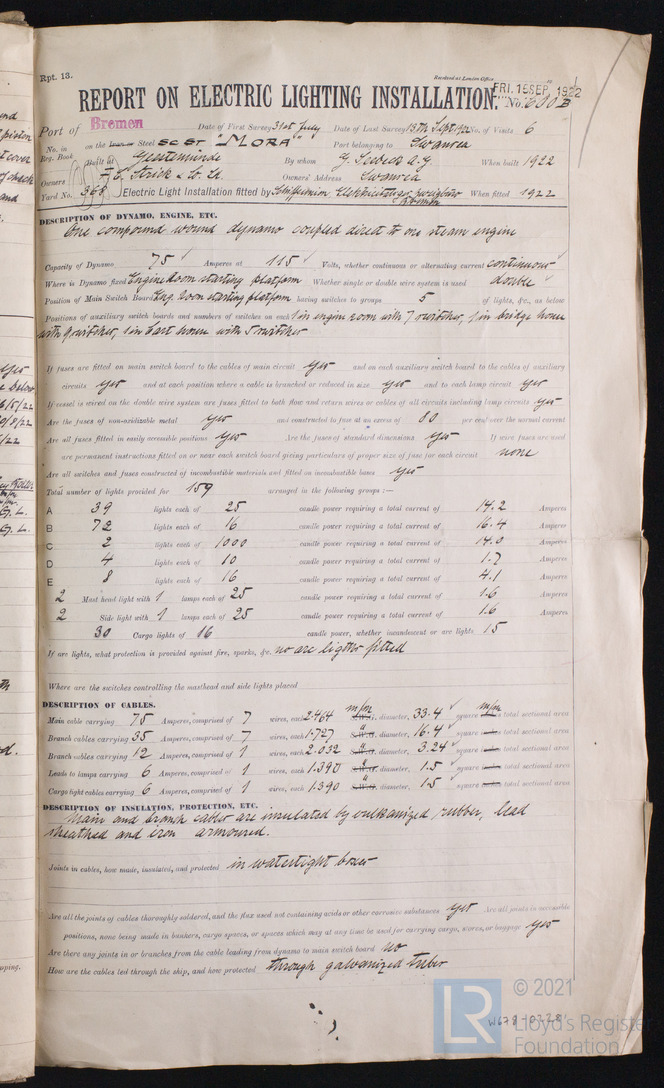 Rpt. 13.
Received at London Office
FRI. 15 SEP. 1922
REPORT ON ELECTRIC LIGHTING INSTALLATION. No.
Port of Bremen Date of First Survey 31st July Date of Last Survey 13th Sept. 1922 No. of Visits 6
No. in Reg. Book on the Iron or Steel SC ST "MORA" Port belonging to Swansea
Built at Geestemünde By whom G. Seebeck A.G. When built 1922
Owners Strick & Co. Owners' Address Swansea
Yard No. 368 Electric Light Installation fitted by When fitted 1922
DESCRIPTION OF DYNAMO, ENGINE, ETC.
One compound wound dynamo coupled direct to one steam engine
Capacity of Dynamo 75 Amperes at 115 Volts, whether continuous or alternating current continuous
Where is Dynamo fixed Engine Room starting platform Whether single or double wire system is used double
Position of Main Switch Board Eng. room starting platform having switches to groups 5 of lights, &c., as below
Positions of auxiliary switch boards and numbers of switches on each 1 in engine room with 7 switches, 1 in bridge house
with 9 switches, 1 in house with 5 switches
If fuses are fitted on main switch board to the cables of main circuit yes and on each auxiliary switch board to the cables of auxiliary
circuits yes and at each position where a cable is branched or reduced in size yes and to each lamp circuit yes
If vessel is wired on the double wire system are fuses fitted to both flow and return wires or cables of all circuits including lamp circuits yes
Are the fuses of non-oxidizable metal yes and constructed to fuse at an excess of 80 per cent over the normal current
Are all fuses fitted in easily accessible positions yes Are the fuses of standard dimensions yes If wire fuses are used
are permanent instructions fitted on or near each switch board giving particulars of proper size of fuse for each circuit none
Are all switches and fuses constructed of incombustible materials and fitted on incombustible bases yes
Total number of lights provided for 159 arranged in the following groups :—
A 39 lights each of 25 candle power requiring a total current of 14.2 Amperes
B 72 lights each of 16 candle power requiring a total current of 16.4 Amperes
C 2 lights each of 1000 candle power requiring a total current of 14.0 Amperes
D 4 lights each of 10 candle power requiring a total current of 1.7 Amperes
E 8 lights each of 16 candle power requiring a total current of 4.1 Amperes
2 Mast head light with 1 lamps each of 25 candle power requiring a total current of 1.6 Amperes
2 Side light with 1 lamps each of 25 candle power requiring a total current of 1.6 Amperes
30 Cargo lights of 16 candle power, whether incandescent or arc lights 15
If arc lights, what protection is provided against fire, sparks, &c. no arc ligthts fitted
Where are the switches controlling the masthead and side lights placed
DESCRIPTION OF CABLES.
Main cable carrying 75 Amperes, comprised of 7 wires, each 2.464 m/m S.W.G. diameter, 33.4 m/m square inches total sectional area
Branch cables carrying 35 Amperes, comprised of 7 wires, each 1.727 " S.W.G. diameter, 16.4 square inches total sectional area
Branch cables carrying 12 Amperes, comprised of 1 wires, each 2.032 " S.W.G. diameter, 3.24 square inches total sectional area
Leads to lamps carrying 6 Amperes, comprised of 1 wires, each 1.390 " S.W.G. diameter, 1.5 square inches total sectional area
Cargo light cables carrying 6 Amperes, comprised of 1 wires, each 1.390 " S.W.G. diameter, 1.5 square inches total sectional area
DESCRIPTION OF INSULATION, PROTECTION, ETC.
Main and branch cables are insulated by vulkanized rubber, lead
sheathed and iron armoured.
Joints in cables, how made, insulated, and protected in watertight boxes
Are all the joints of cables thoroughly soldered, and the flux used not containing acids or other corrosive substances yes Are all joints in accessible
positions, none being made in bunkers, cargo spaces, or spaces which may at any time be used for carrying cargo, stores, or baggage yes
Are there any joints in or branches from the cable leading from dynamo to main switch board no
How are the cables led through the ship, and how protected through galvanized tubes
W678-0228
LR
© 2021
Lloyd's Register
Foundation